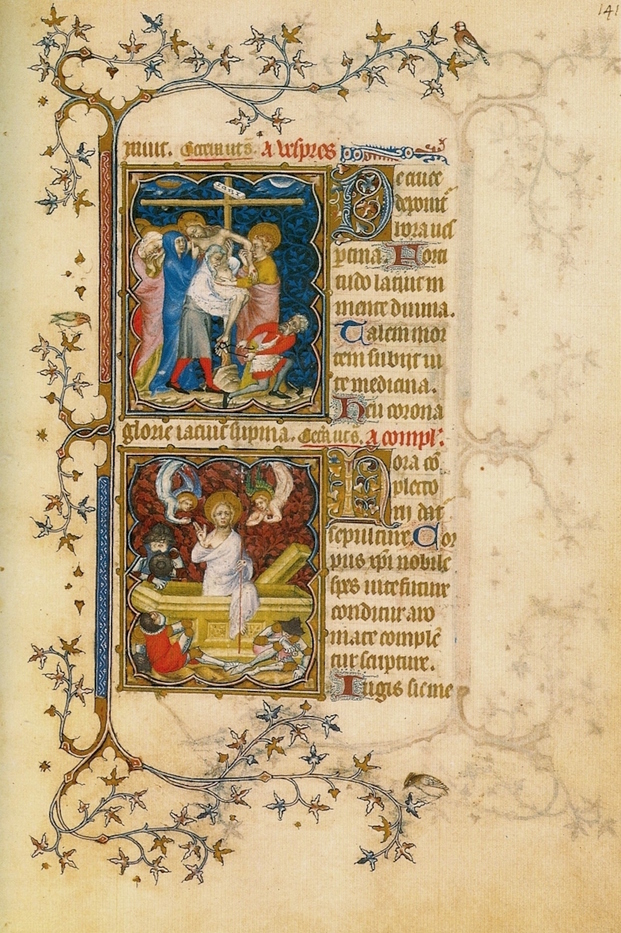 141
A vespres
De cruce
deponit
hora ves
ptina. Forti
tudo latuit in
mente divina.
Talem mor
tem subijt vi
te medicina.
Heu corona
glorie iacuit supina. Oremus ut s. A compl'.
Hora cō
pleto
rij dat'
sepulture. Cor
pus xp̄i nobile
spes vite future
conditur aro
mate comple
tur scripture.
Iugis sit me